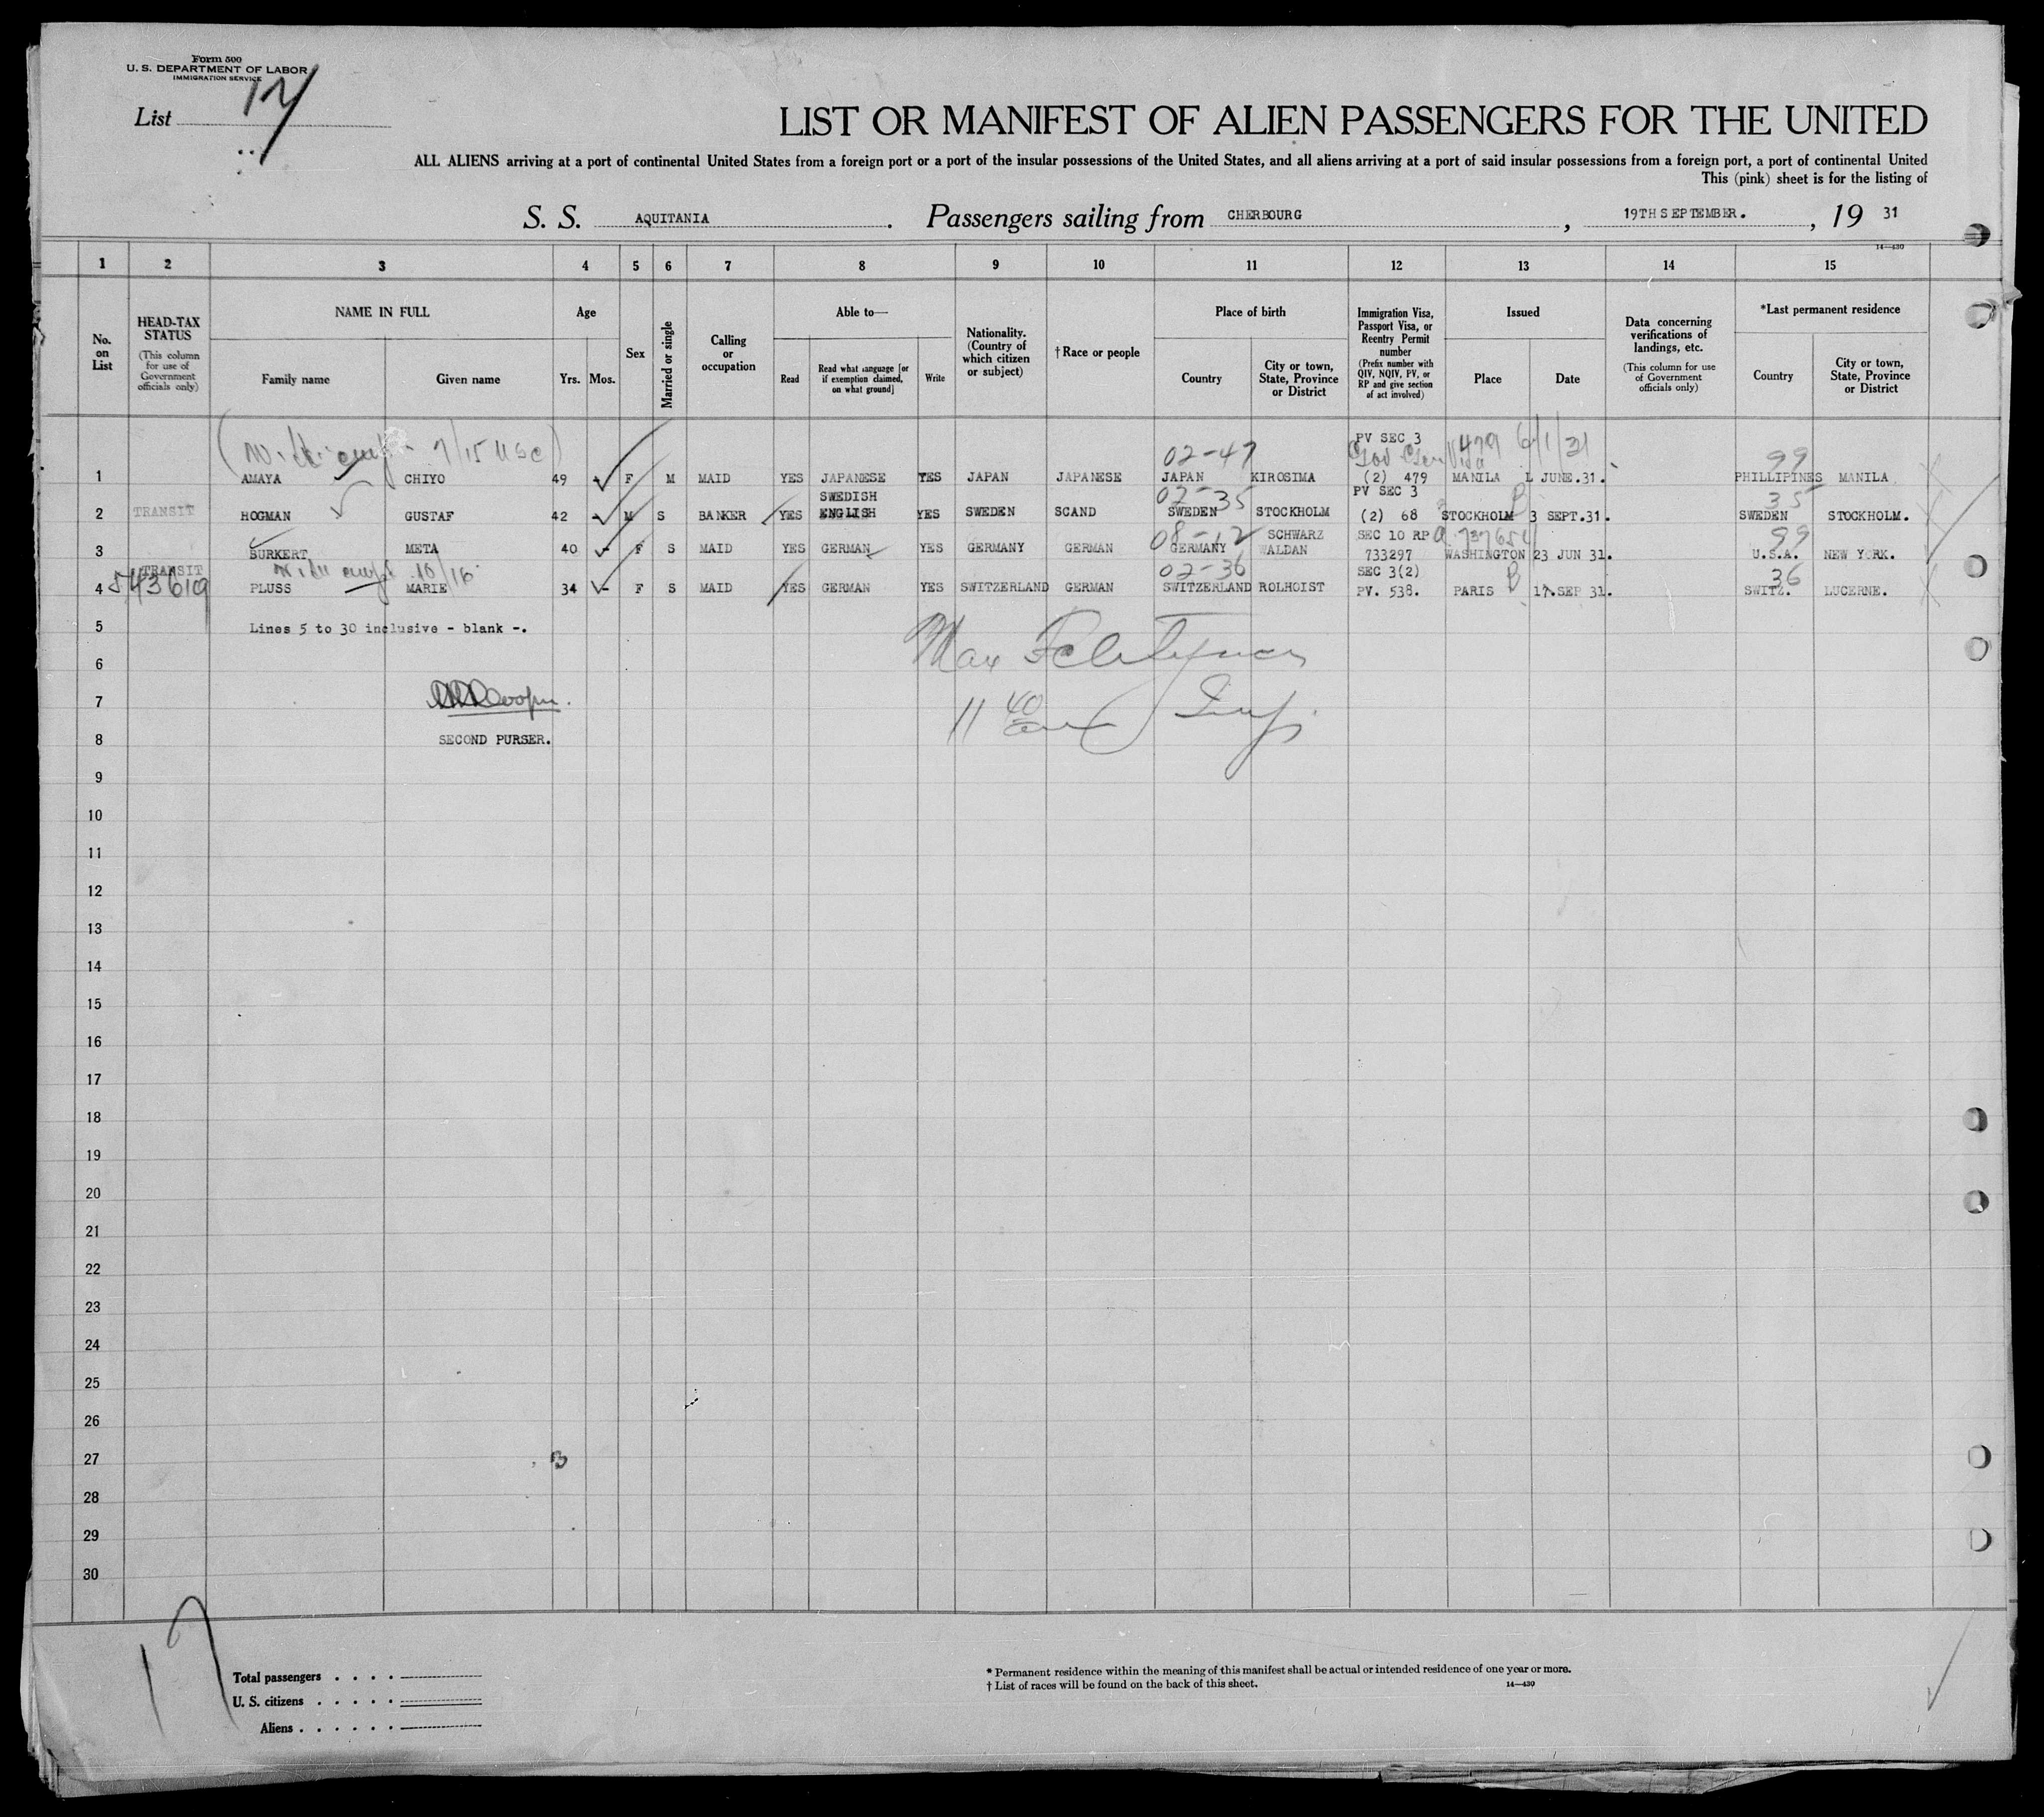 Form 500
U. S. DEPARTMENT OF LABOR
IMMIGRATION SERVICE
List 17
LIST OR MANIFEST OF ALIEN PASSENGERS FOR THE UNITED
ALL ALIENS arriving at a port of continental United States from a foreign port or a port of the insular possessions of the United States, and all aliens arriving at a port of said insular possessions from a foreign port, a port of continental United
This (pink) sheet is for the listing of
S. S. AQUITANIA. Passengers sailing from CHERBOURG, 19TH SEPTEMBER., 19 31
14—430
1 2 3 4 5 6 7 8 9 10 11 12 13 14 15
No. on List
HEAD-TAX STATUS (This column for use of Government officials only)
NAME IN FULL
Family name Given name
Age
Yrs. Mos.
Sex
Married or single
Calling or occupation
Able to—
Read Read what language [or if exemption claimed, on what ground] Write
Nationality. (Country of which citizen or subject)
†Race or people
Place of birth
Country City or town, State, Province or District
Immigration Visa, Passport Visa, or Reentry Permit number (Prefix number with QIV, NQIV, PV, or RP and give section of act involved)
Issued
Place Date
Data concerning verifications of landings, etc. (This column for use of Government officials only)
*Last permanent residence
Country City or town, State, Province or District
7/15 USC 02-47 PV SEC 3 479 6/1/31 99
1 AMAYA CHIYO 49 F M MAID YES JAPANESE YES JAPAN JAPANESE JAPAN KIROSIMA (2) 479 MANILA L JUNE.31. PHILLIPINES MANILA
SWEDISH 02-35 PV SEC 3 B 35
2 TRANSIT HOGMAN GUSTAF 42 M S BANKER YES ENGLISH YES SWEDEN SCAND SWEDEN STOCKHOLM (2) 68 STOCKHOLM 3 SEPT.31. SWEDEN STOCKHOLM.
08-12 SCHWARZ SEC 10 RP 99
3 BURKERT META 40 F S MAID YES GERMAN YES GERMANY GERMAN GERMANY WALDAN 733297 WASHINGTON 23 JUN 31. U.S.A. NEW YORK.
TRANSIT 10/16 02-36 SEC 3(2) B 36
4 543619 PLUSS MARIE 34 F S MAID YES GERMAN YES SWITZERLAND GERMAN SWITZERLAND ROLHOIST PV. 538. PARIS 17.SEP 31. SWITZ. LUCERNE.
5 Lines 5 to 30 inclusive - blank -.
6 Max
7 Cooper. 11 40
8 SECOND PURSER.
9
10
11
12
13
14
15
16
17
18
19
20
21
22
23
24
25
26
27
28
29
30
17
Total passengers
U. S. citizens
Aliens
* Permanent residence within the meaning of this manifest shall be actual or intended residence of one year or more.
† List of races will be found on the back of this sheet.
14—430